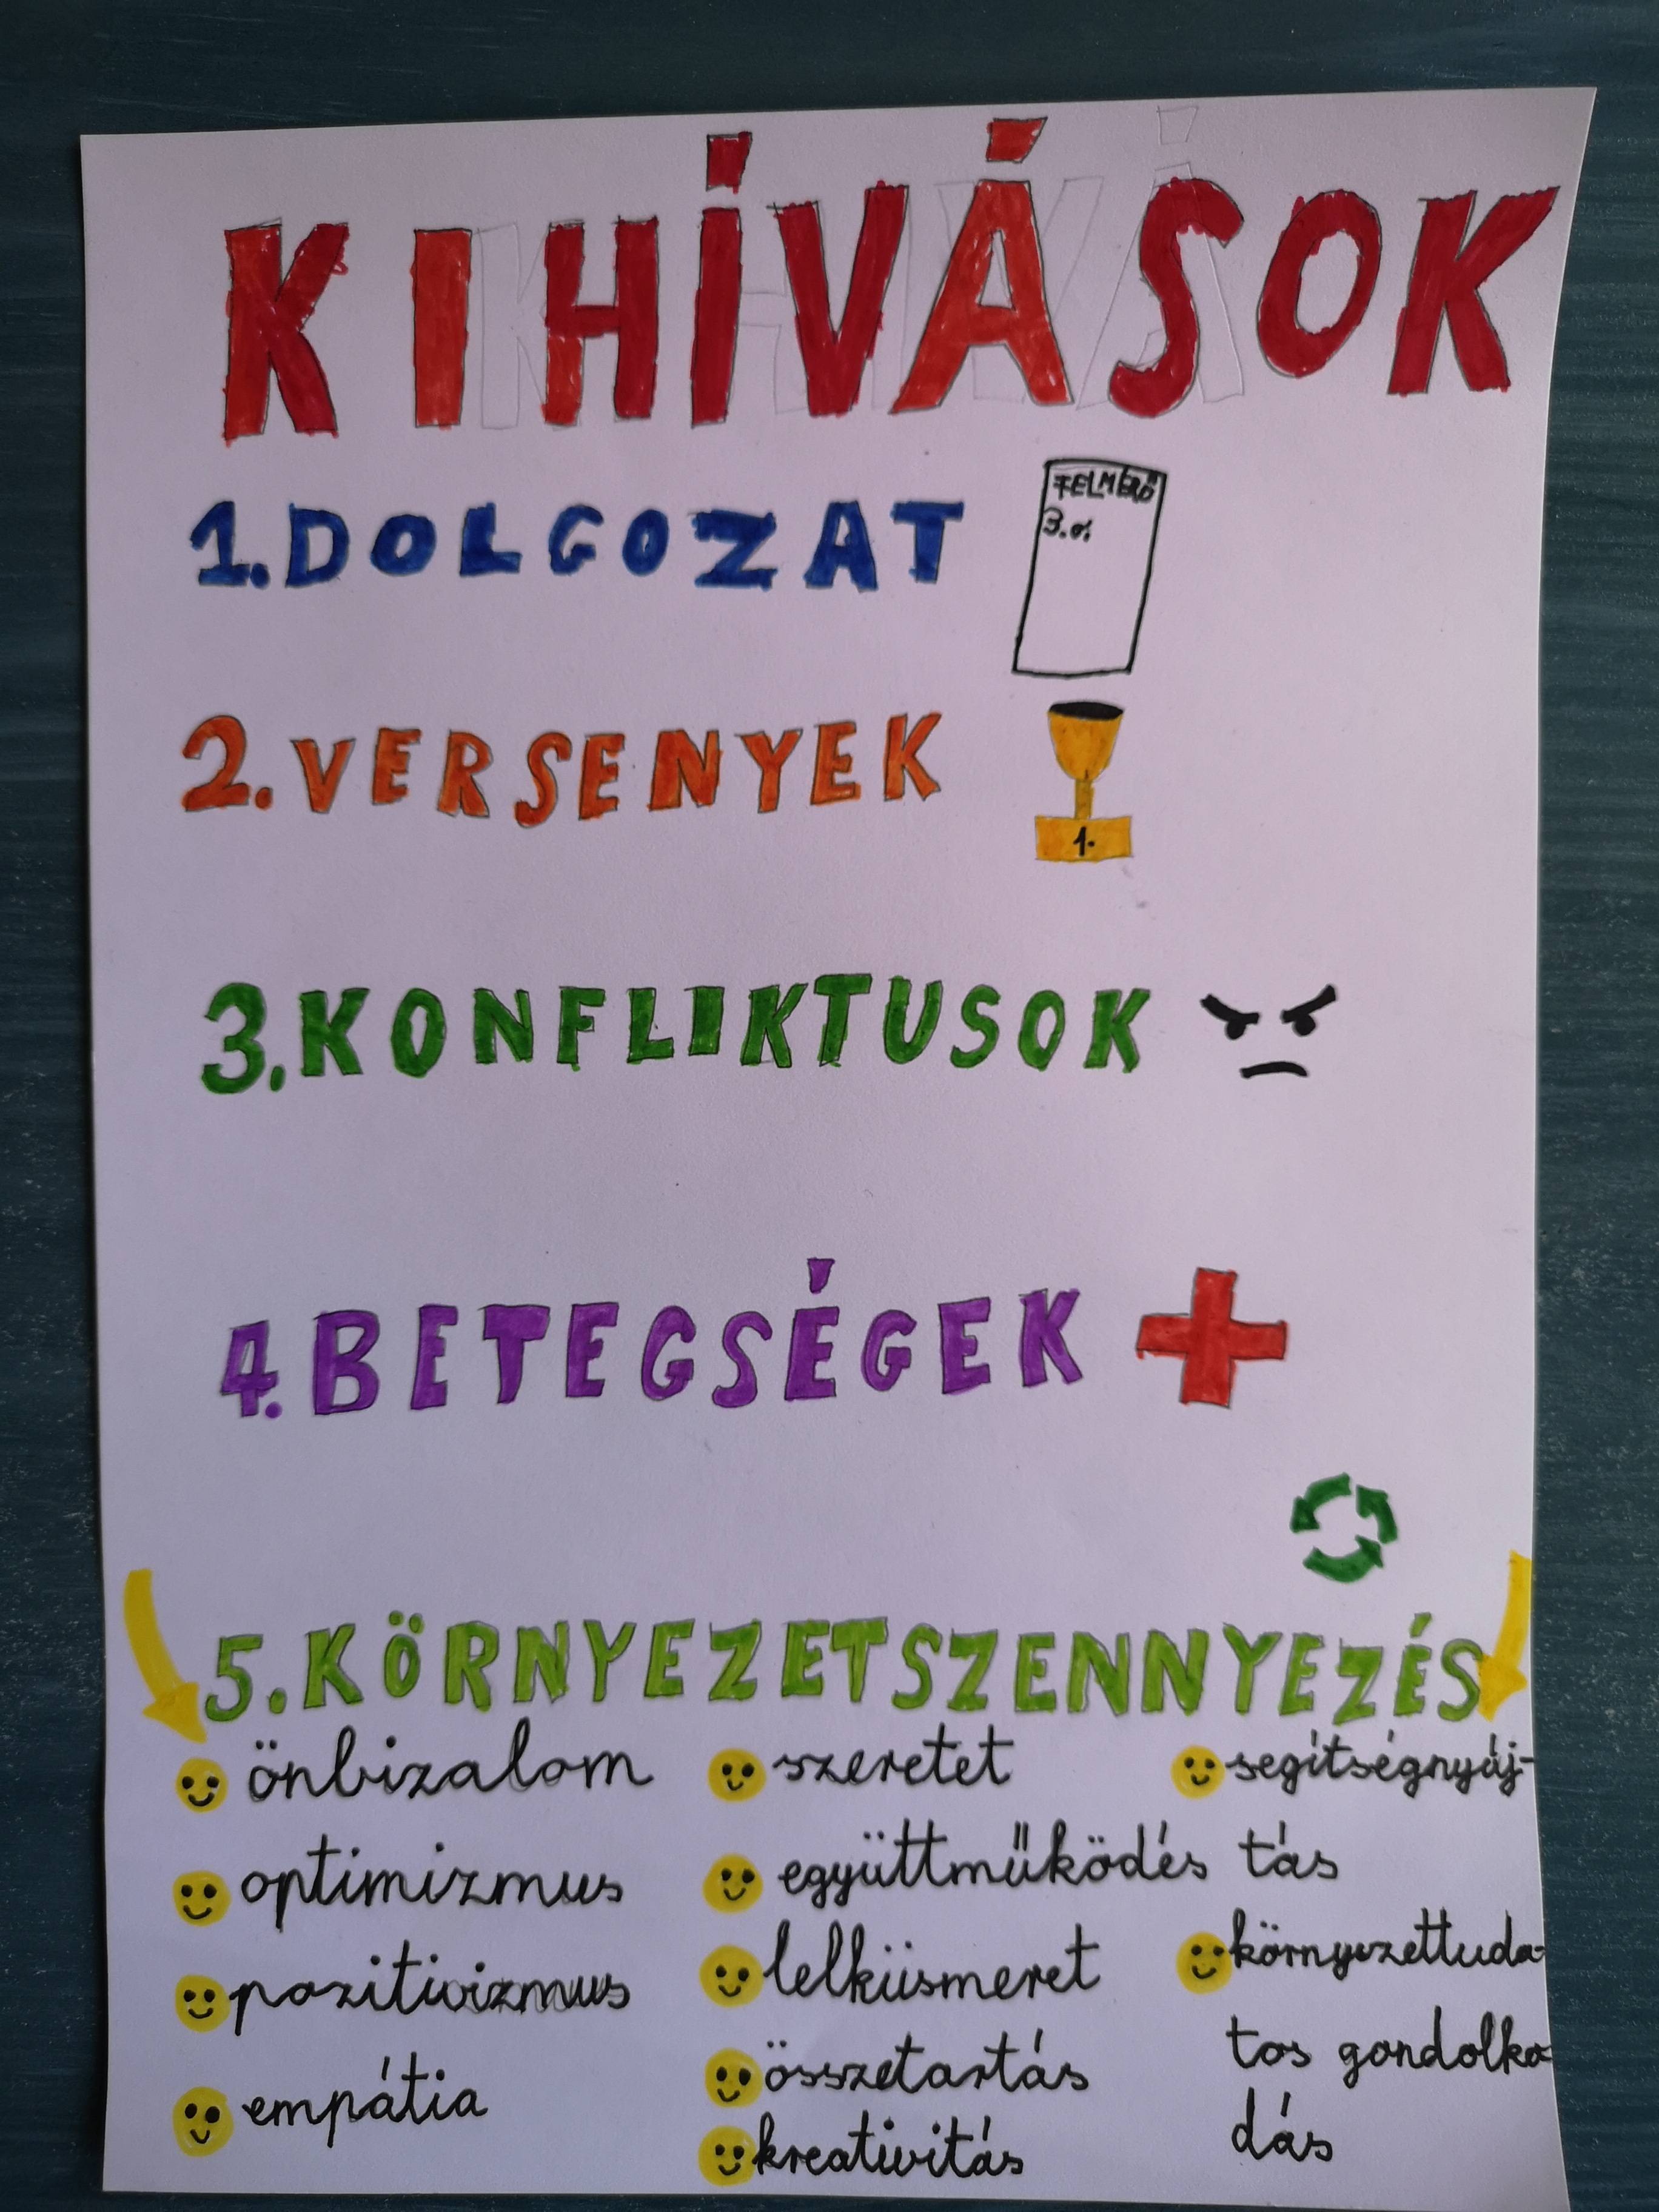 KIHÍVÁSOK
1.DOLGOZAT
FELMÉRŐ
3.o.
2.VERSENYEK
1.
3.KONFLIKTUSOK
4.BETEGSÉGEK
5.KÖRNYEZETSZENNYEZÉS
önbizalom
optimizmus
pozitivizmus
empátia
szeretet
együttműködés
lelkiismeret
összetartás
kreativitás
segítségnyúj-
tás
környezettuda-
tos gondolko-
dás